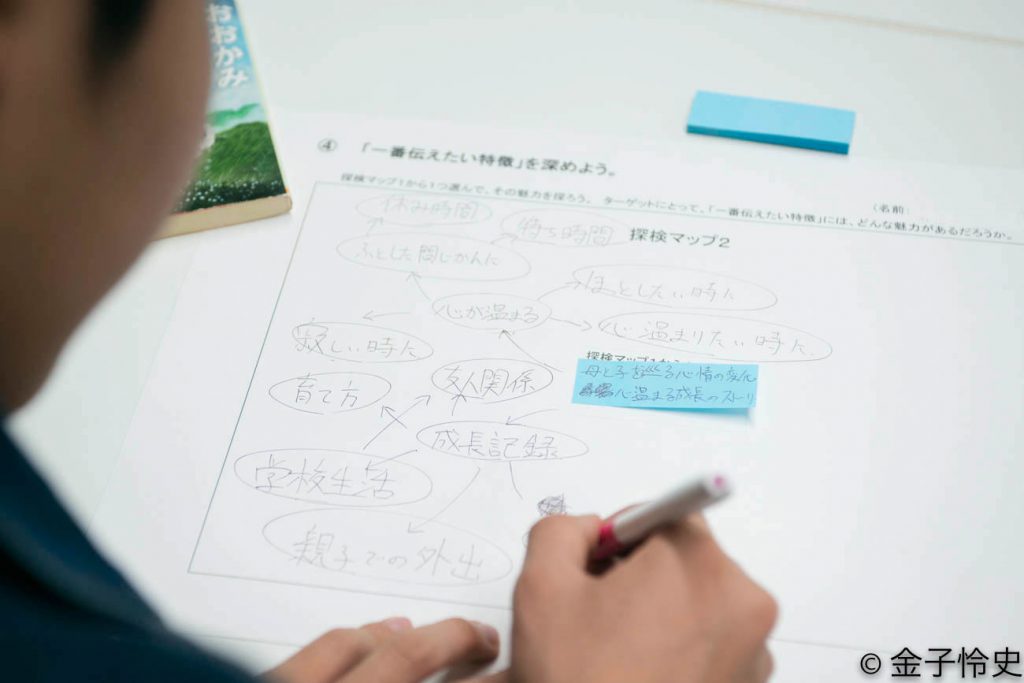 おおかみ
④ 「一番伝えたい特徴」を深めよう。
〈名前
探検マップ1から1つ選んで、その魅力を探ろう。 ターゲットにとって、「一番伝えたい特徴」には、どんな魅力があるだろうか。
探検マップ2
休み時間
待ち時間
ふとした間じかんに
ほっとしたい時に
心が温まる
心温まりたい時に
寂しい時に
探検マップ1から
母と子を巡る心情の変化
心温まる成長のストーリ
友人関係
育て方
成長記録
学校生活
親子での外出
© 金子怜史